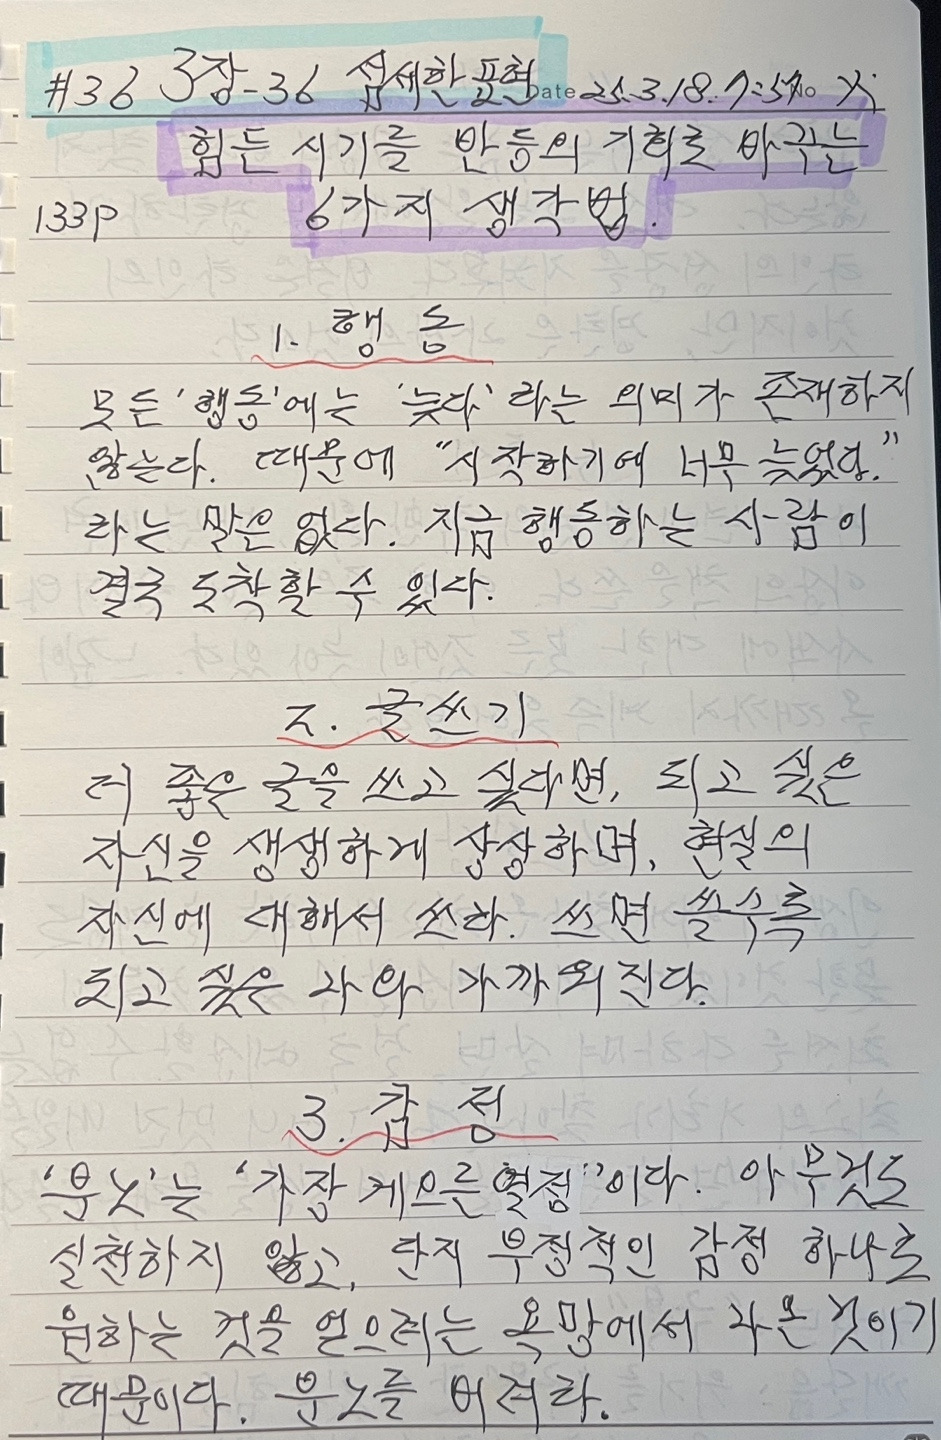 #36 3장-36 섬세한 표현 Date 25.3.18. 7:57 No 火
힘든 시기를 반등의 기회로 바꾸는
133p 6가지 생각법.
1. 행동
모든 '행동'에는 '늦다' 라는 의미가 존재하지
않는다. 때문에 "시작하기에 너무 늦었어."
라는 말은 없다. 지금 행동하는 사람이
결국 도착할 수 있다.
2. 글쓰기
더 좋은 글을 쓰고 싶다면, 되고 싶은
자신을 생생하게 상상하며, 현실의
자신에 대해서 쓰라. 쓰면 쓸수록
되고 싶은 나와 가까워진다.
3. 감정
'분노'는 '가장 게으른 열정'이다. 아무것도
실천하지 않고, 단지 부정적인 감정 하나로
원하는 것을 얻으려는 욕망에서 나온 것이기
때문이다. 분노를 버려라.